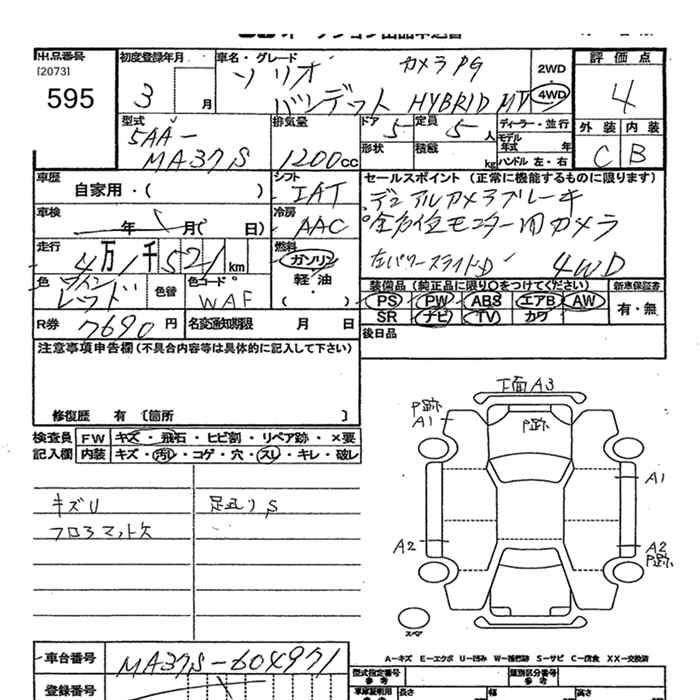 出品番号
[2073]
595
初度登録年月
3 月
車名・グレード
ソリオ カメラPG
バンデット HYBRID MV
2WD
4WD
評価点
4
外装 内装
C B
型式
5AA-
MA37S
排気量
1200cc
ドア 5
定員 5人
ディーラー・並行
形状
積載 kg
モデル年式 年
ハンドル 左・右
車歴
自家用・( )
シフト
IAT
セールスポイント (正常に機能するものに限ります)
デュアルカメラブレーキ
全方位モニター用カメラ
左パワースライドD 4WD
車検
年 月( 日)
冷房
AAC
走行
4万1千521km
燃料
ガソリン
軽油
( )
色
ワイン
レッド
色替
色コード
WAF
装備品 (純正品に限り○をつけてください)
PS PW ABS エアB AW
SR ナビ TV カワ
新車保証書
有・無
R券 7690円
名変通知期限 月 日
後日品
注意事項申告欄(不具合内容等は具体的に記入して下さい)
修復歴 有 [箇所 ]
検査員記入欄
FW キズ・飛石・ヒビ割・リペア跡・×要
内装 キズ・汚レ・コゲ・穴・スレ・キレ・破レ
キズU 足廻りS
フロアマット欠
下面A3
P跡
A1
P跡
A1
A2
A2
P跡
スペア
A－キズ E－エクボ U－凹み W－補修跡 S－サビ C－腐食 XX－交換済
車台番号 MA37S-604971
登録番号
型式指定番号
参考
類別区分番号
参考
長さ 幅 高さ